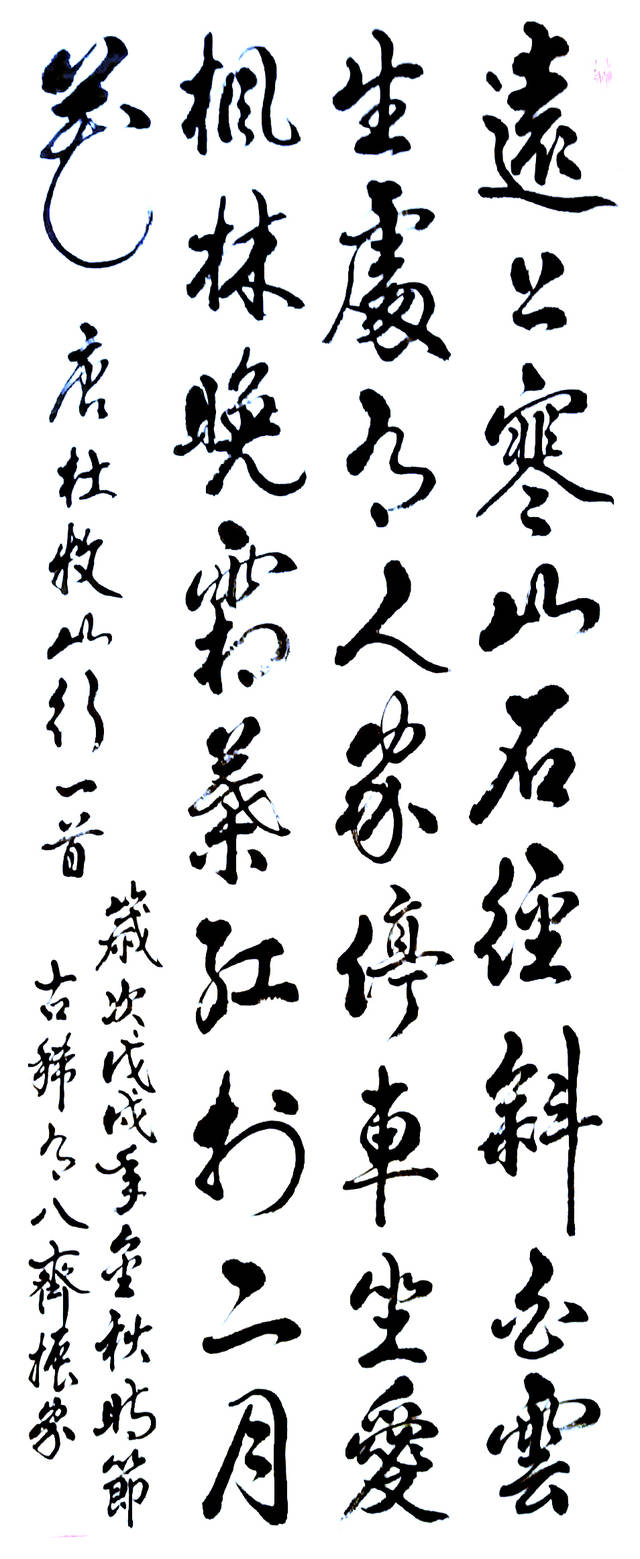 遠上寒山石徑斜白雲
生處有人家停車坐愛
楓林晚霜葉紅於二月
花 唐杜牧山行一首
歲次戊戌年金秋時節
古稀有八齊振家